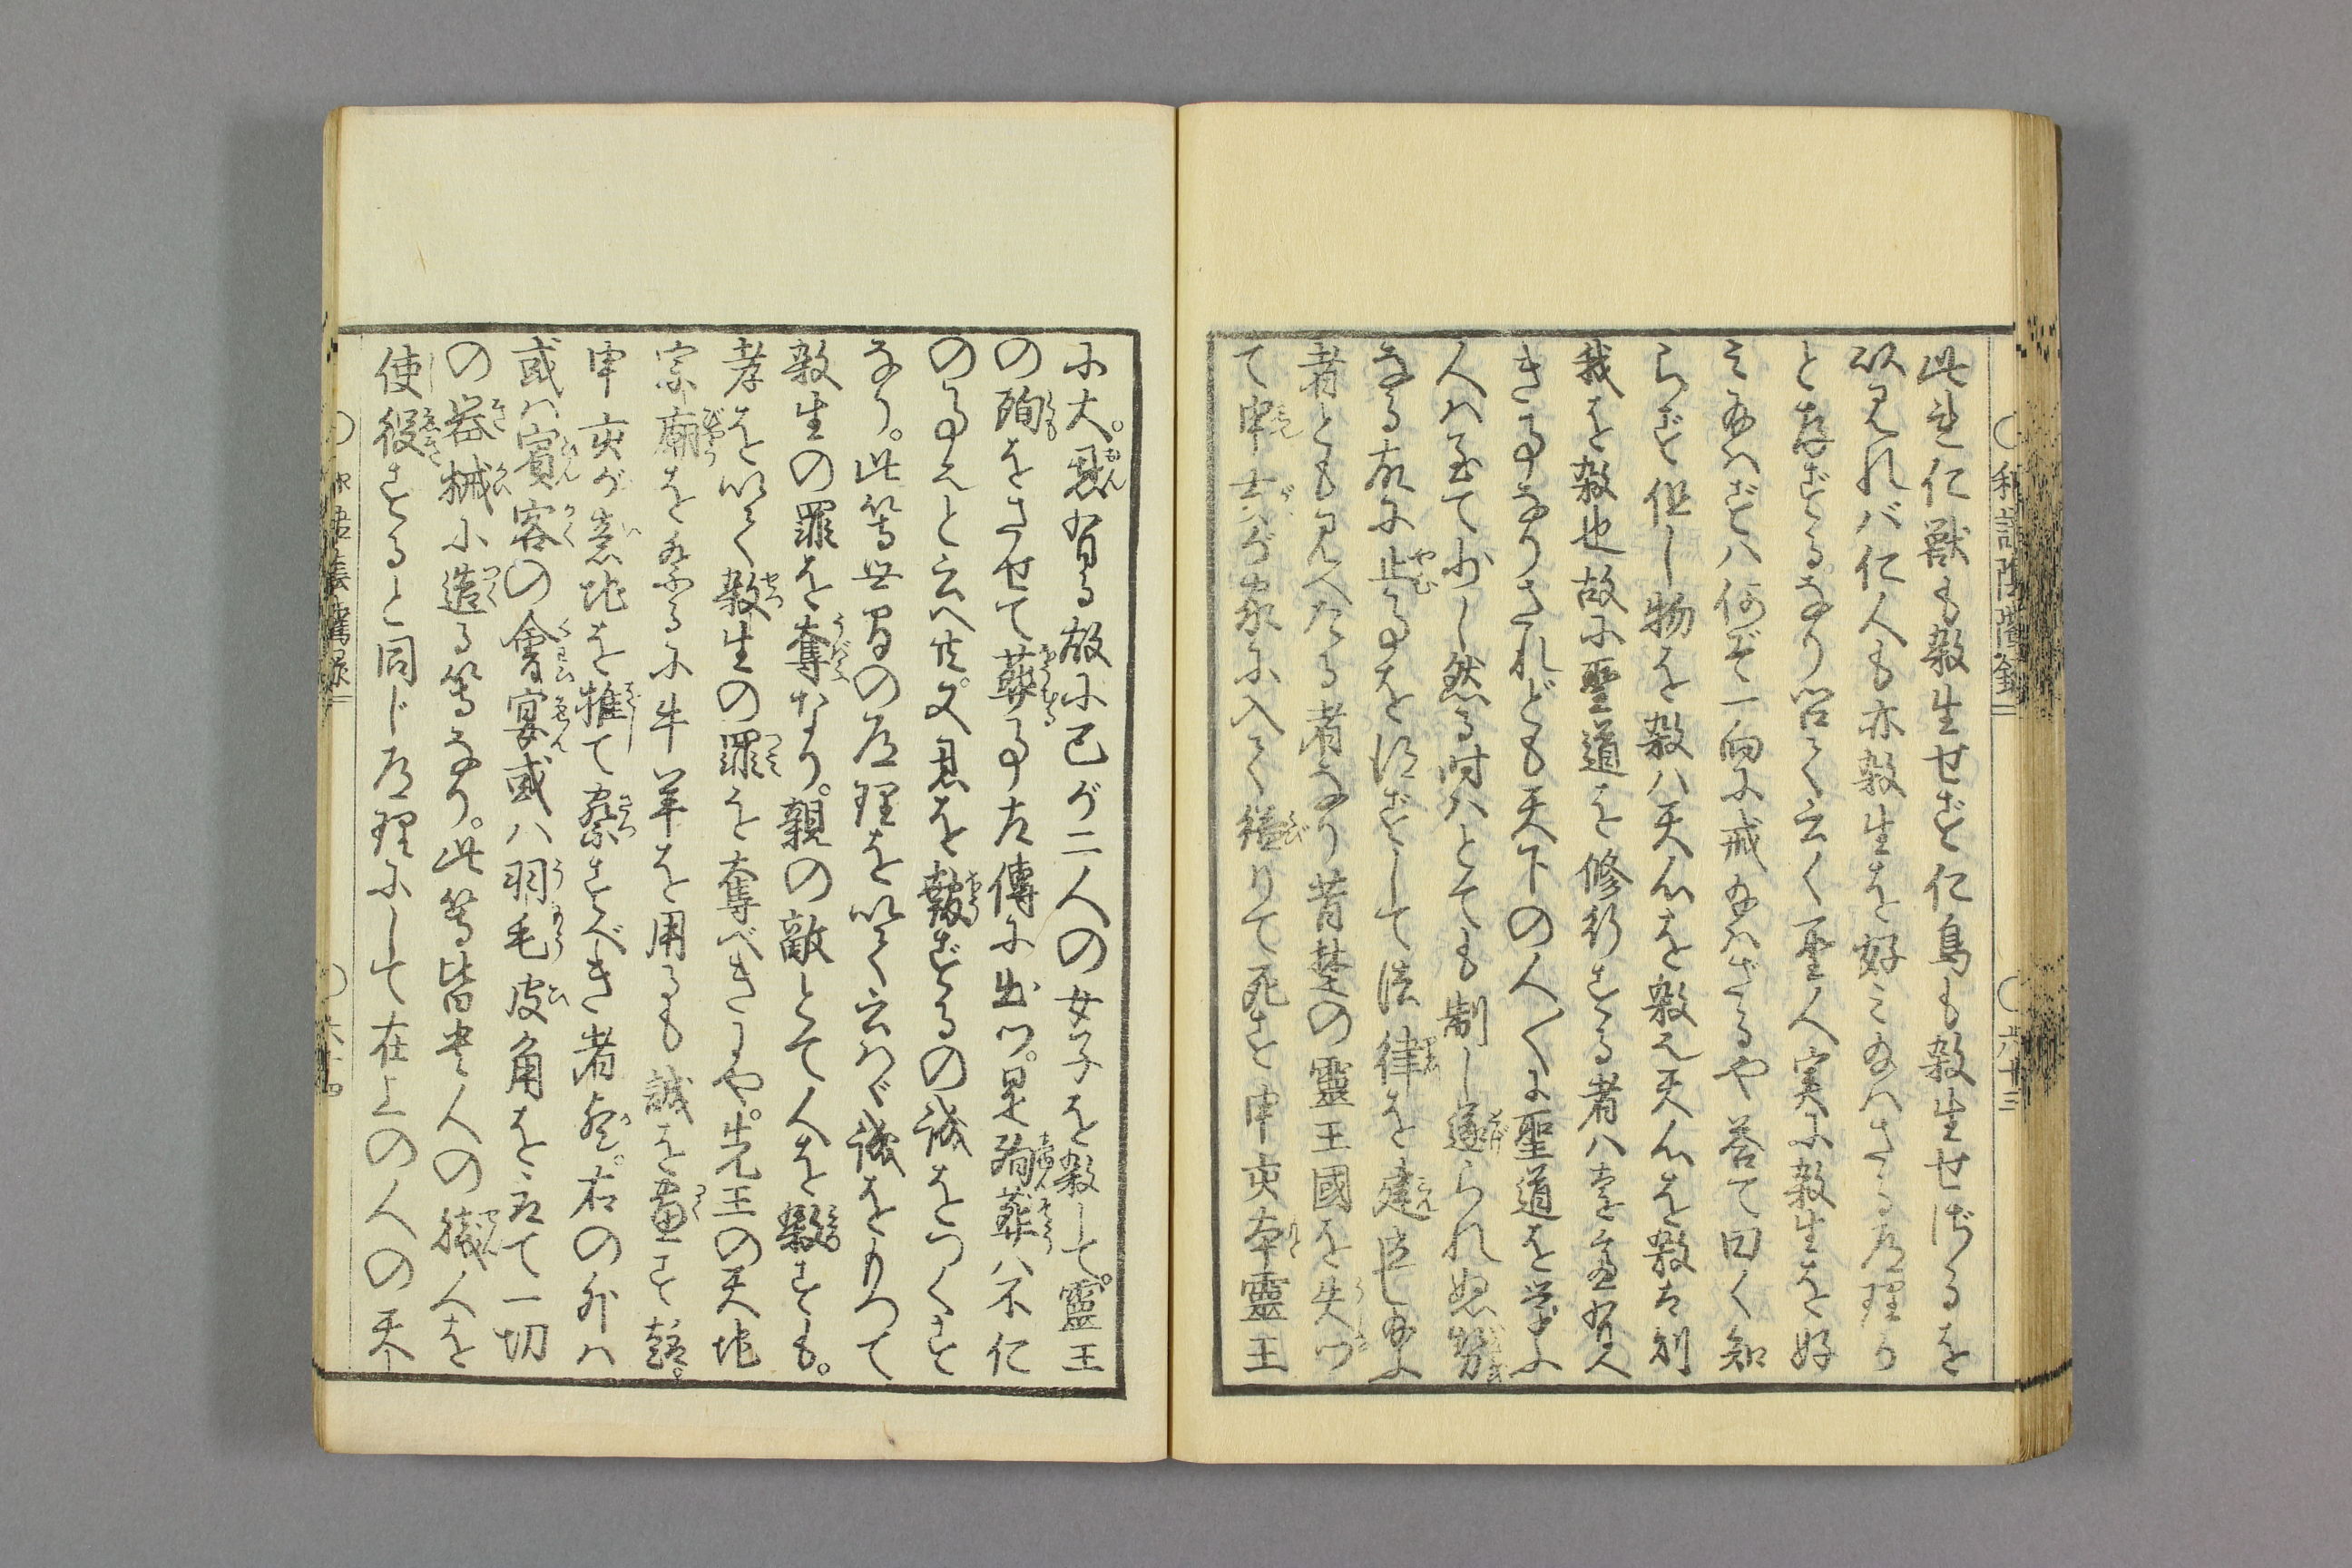 此まで仁獣も殺生せず仁鳥も殺生せざるを
以見れバ仁人も亦殺生を好ミ給ハさる道理り
と存ずるなり答て云く聖人実に殺生を好
ミ給ハずバ何ぞ一向に戒給ハざるや答て曰く知
らずや但し物を殺ハ天心を殺也天心を殺は則
我を殺也故に聖道を修行する者ハ
き事なりされども天下の人〳〵に聖道を学ふ
人ハ至て少し然る時ハとても制し遂られぬ勢
なる故に止事を得ずして法律を建立し給ふ
者とも見へたる者なり昔楚の霊王國を失ツ
て申亥が家に入て縊りて死す申亥本霊王
に大恩有る故に己が二人の女子を殺して霊王
の殉をさせて葬る事左傳に出ツ是殉葬ハ不仁
の事と云へ共又君を報ずるの誠をつくす
なり此等世間の道理を以て云ハヾ誠をもつて
殺生の罪を奪なり親の敵とて人を殺すも
孝を以て殺生の罪を奪べきにや先王の天地
宗廟を祭るに牛羊を用るも誠を盡す
申亥が意地を推て察すべき者右の外ハ
或ハ賓客の會宴或ハ羽毛皮角を取て一切
の器械に造る等なり此等皆人の賎人を
使役すると同じ道理にして在上の人の天
〇六十三